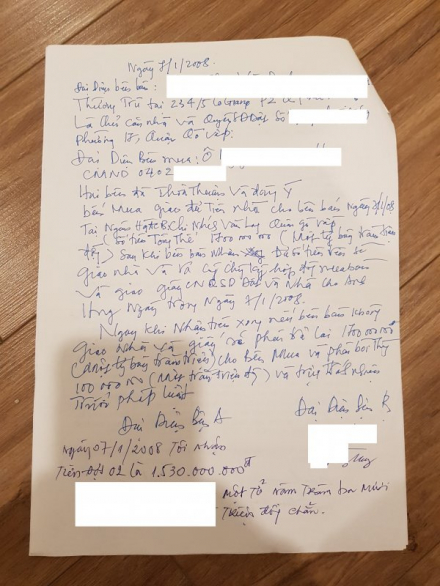 Ngày 7/1/2008.
Đại Diện bên bán:
Thường Trú tại 234/5 P2
Là chủ căn nhà và Quyền
Phường 17, Quận Gò Vấp.
Đại Diện Bên mua: Ô
CMND 0402
Hai bên đã Thỏa Thuận và đồng Ý
bên Mua giao đủ Tiền nhà cho bên bán Ngày 7/1/08
Tại Ngân Chi Nhánh Quận gò vấp
1700.000.000 (Một tỷ bảy trăm triệu
đồng) Sau khi bên bán Nhận Tiền
giao nhà và ký hợp đồng mua bán
và giao giấy CN QSD Đất và Nhà cho Anh
Hưng Ngay trong Ngày 7/1/2008.
Ngay khi Nhận tiền xong nếu bên bán không
giao Nhà và giấy phải trả lại 1700.000.000
(Một tỷ bảy trăm triệu) cho bên Mua và phải bồi Thường
100.000.000 (Một trăm triệu đồng) và chịu trách nhiệm
Trước pháp luật
Đại Diện Bên A Đại Diện Bên B
Ngày 07/1/2008 Tôi Nhận
Tiền Đợt 02 là 1.530.000.000đ
Một Tỷ năm Trăm ba Mươi
Triệu đồng chẵn.